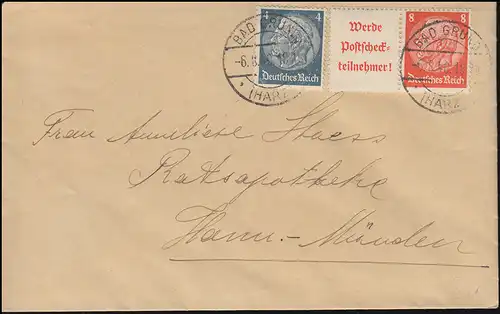 4
Deutsches Reich
Werde
Postscheck-
teilnehmer!
8
Deutsches Reich
BAD GRUND
-6.8.
(HARZ
BAD GRUND
(HARZ
Frau Anneliese
Ratsapotheke
Hann.-Münden